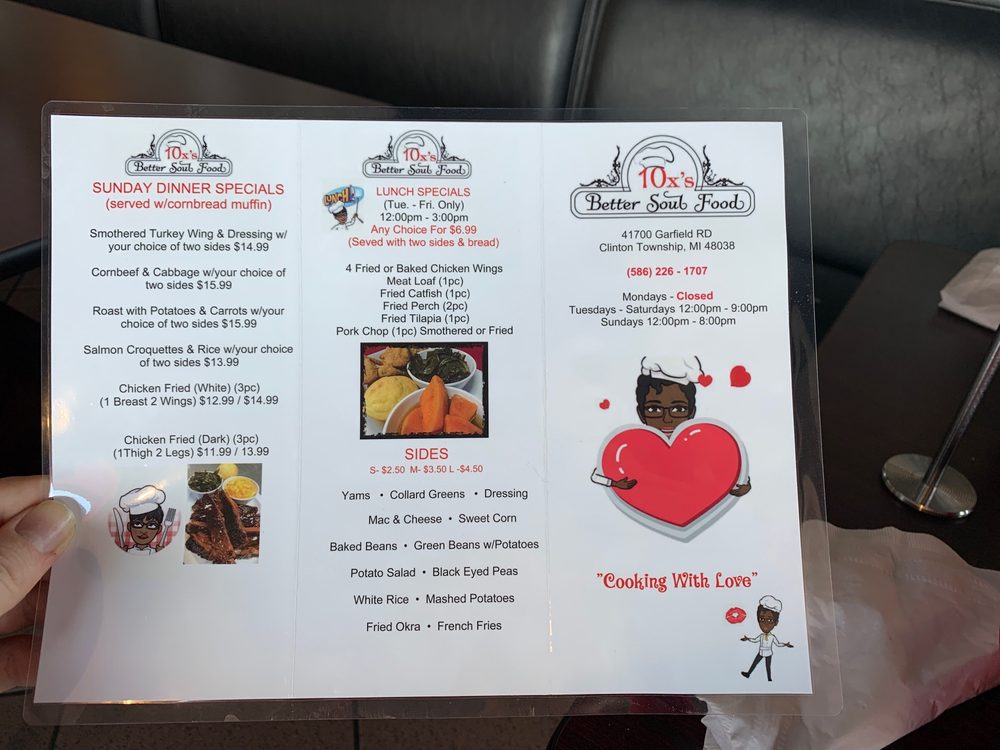 10x's
Better Soul Food
SUNDAY DINNER SPECIALS
(served w/cornbread muffin)
Smothered Turkey Wing & Dressing w/
your choice of two sides $14.99
Cornbeef & Cabbage w/your choice of
two sides $15.99
Roast with Potatoes & Carrots w/your
choice of two sides $15.99
Salmon Croquettes & Rice w/your choice
of two sides $13.99
Chicken Fried (White) (3pc)
(1 Breast 2 Wings) $12.99 / $14.99
Chicken Fried (Dark) (3pc)
(1Thigh 2 Legs) $11.99 / 13.99
10x's
Better Soul Food
LUNCH
LUNCH SPECIALS
(Tue. - Fri. Only)
12:00pm - 3:00pm
Any Choice For $6.99
(Seved with two sides & bread)
4 Fried or Baked Chicken Wings
Meat Loaf (1pc)
Fried Catfish (1pc)
Fried Perch (2pc)
Fried Tilapia (1pc)
Pork Chop (1pc) Smothered or Fried
SIDES
S- $2.50 M- $3.50 L -$4.50
Yams • Collard Greens • Dressing
Mac & Cheese • Sweet Corn
Baked Beans • Green Beans w/Potatoes
Potato Salad • Black Eyed Peas
White Rice • Mashed Potatoes
Fried Okra • French Fries
10x's
Better Soul Food
41700 Garfield RD
Clinton Township, MI 48038
(586) 226 - 1707
Mondays - Closed
Tuesdays - Saturdays 12:00pm - 9:00pm
Sundays 12:00pm - 8:00pm
"Cooking With Love"